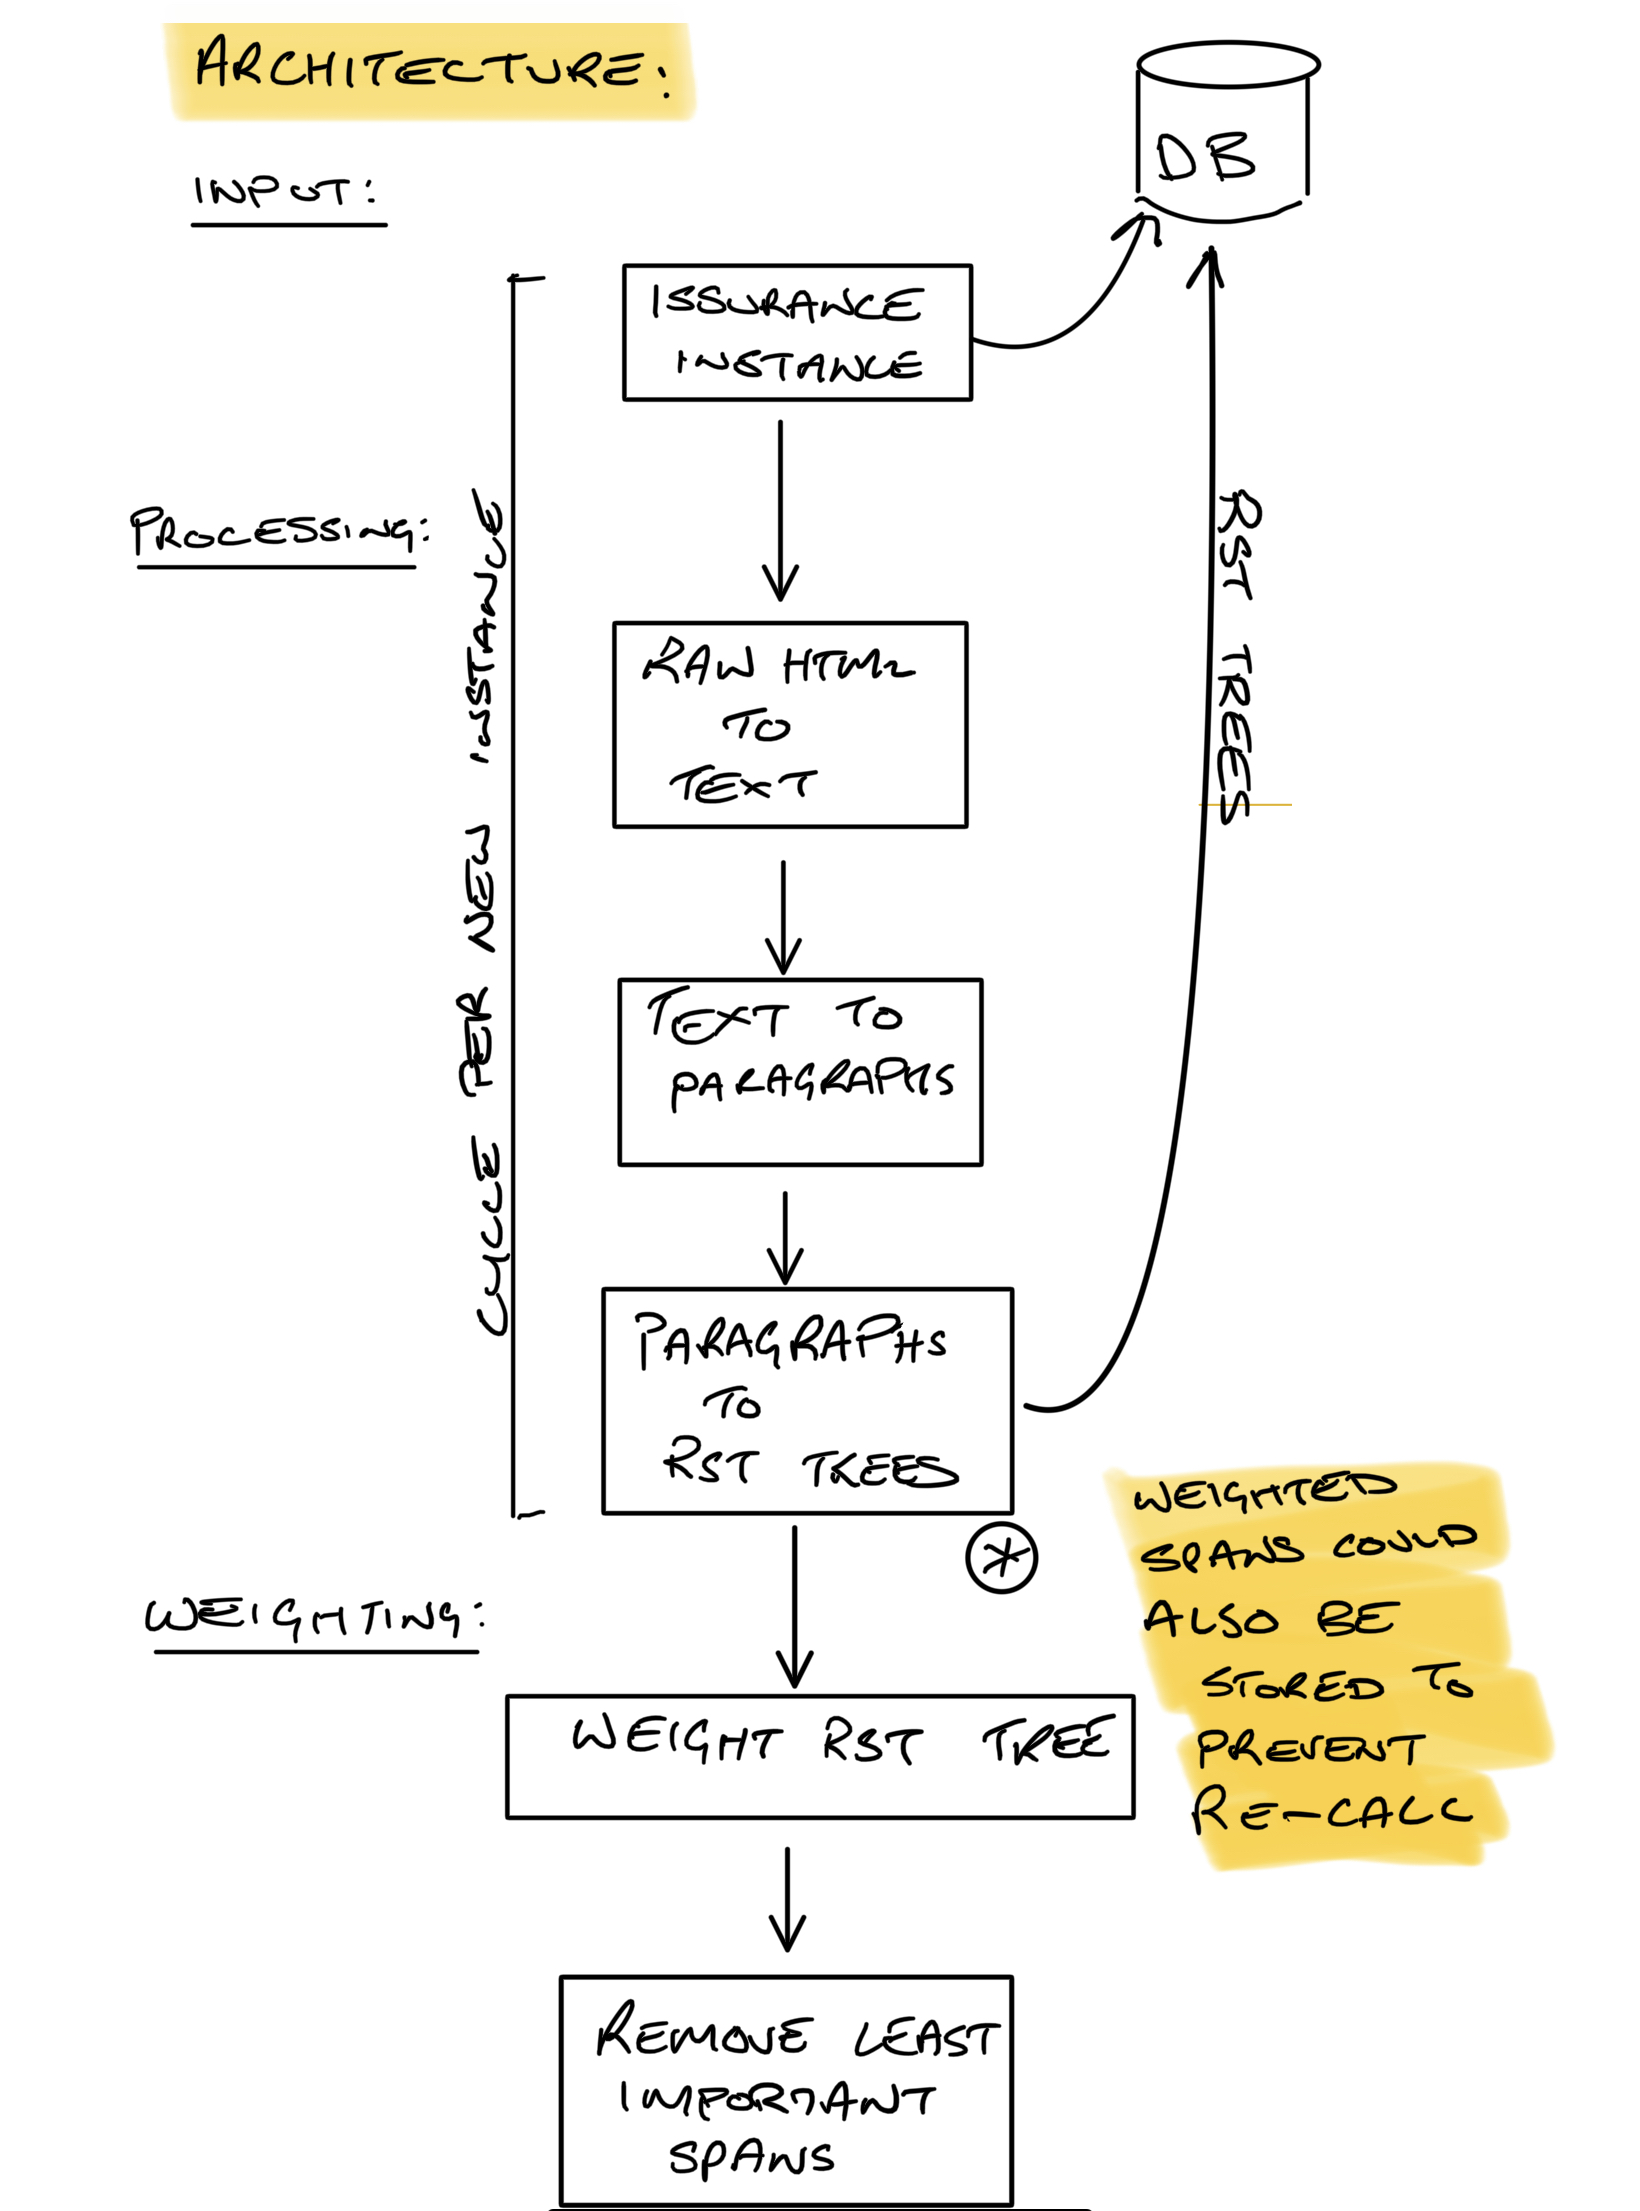 ARCHITECTURE:
DB
INPUT:
ISSURANCE
INSTANCE
PROCESSING:
CYCLE PER NEW INSTANCE
RST TREES
RAW HTML
TO
TEXT
TEXT TO
PARAGRAPHS
PARAGRAPHS
TO
RST TREES
*
WEIGHTED
SPANS COULD
ALSO BE
STORED TO
PREVENT
RE-CALC
WEIGHTING:
WEIGHT RST TREE
REMOVE LEAST
IMPORTANT
SPANS